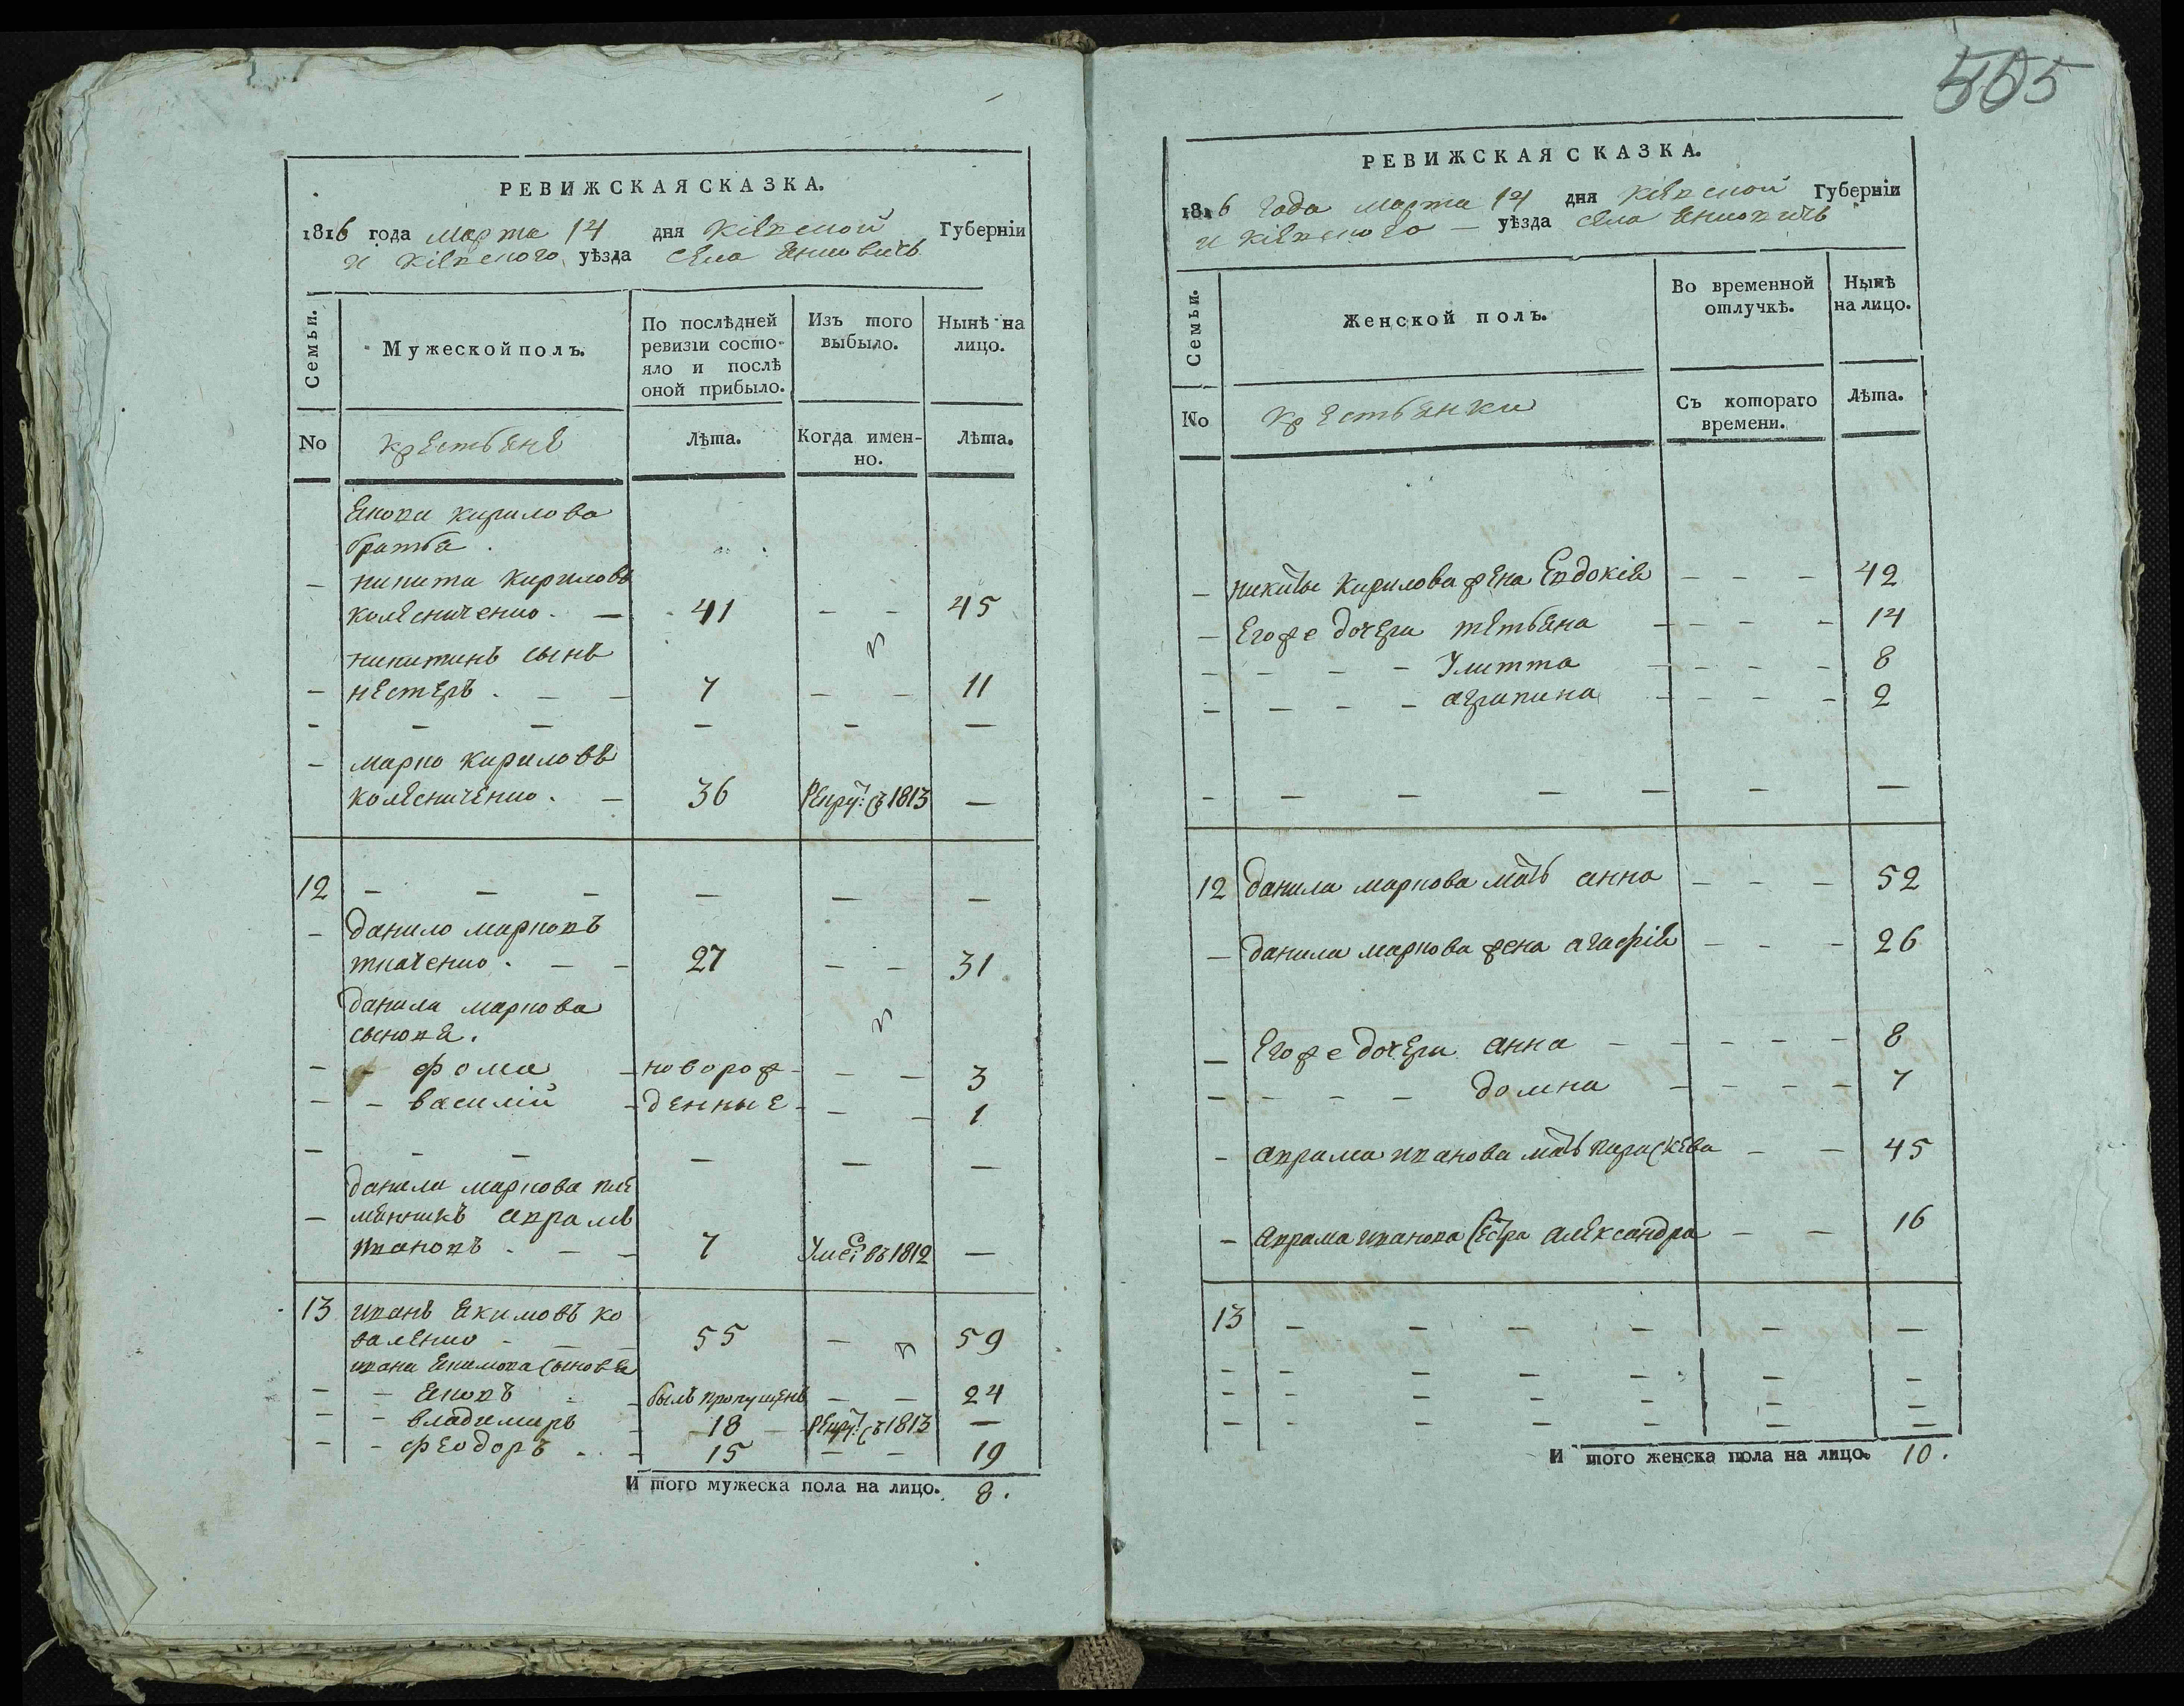 555
РЕВИЖСКАЯ СКАЗКА.
1816 года марта 14 дня Кіевской Губерніи
и Кіевского уѣзда села Янковичь
Семьи.
Мужеской полъ.
По послѣдней ревизіи состояло и послѣ оной прибыло.
Изъ того выбыло.
Нынѣ на лицо.
No
крестьяне
Лѣта.
Когда именно.
Лѣта.
Якова Кирилова
братья.
– никита Кириловъ
колесниченко. – 41 – – 45
никитинъ сынъ
– нестеръ. – – 7 – – 11
– – – – – –
– марко Кириловъ
колесниченко. – 36 Рекрут: въ 1813 –
12 – – – – – –
– данило марковъ
ткаченко. – – 27 – – 31
данила маркова
сыновя.
– – фома – новорож – – – 3
– – василій – денные – – – 1
– – – – – –
данила маркова пле
– мянникъ аврамъ
ивановъ. – – 7 Умеръ въ 1812 –
13 иванъ Якимовъ ко
валенко – – – 55 – 59
ивана Якимова сыновья
– – Яковъ – былъ пропущенъ – – 24
– – владимиръ – 18 – Рекрут: въ 1813 –
– – феодоръ. – 15 – – 19
И того мужеска пола на лицо. 8.
РЕВИЖСКАЯ СКАЗКА.
1816 года марта 14 дня Кіевской Губерніи
и Кіевского – уѣзда села Янковичь
Семьи.
Женской полъ.
Во временной отлучкѣ.
Нынѣ на лицо.
No
крестьянки
Съ котораго времени.
Лѣта.
– никиты Кирилова жена Евдокія – – – 42
– Его же дочери тетьяна – – – – 14
– – – – Улитта – – – – 8
– – – – агрипина – – – – 2
– – – – – – –
12 данила маркова мать анна – – – 52
– данила маркова жена агафія – – – 26
– Его же дочери анна – – – – – 8
– – – – домна – – – – 7
– аврама иванова мать параскева – – 45
– аврама иванова сестра александра – – 16
13 – – – – – –
– – – – – – –
– – – – – – –
– – – – – – –
И того женска пола на лицо. 10.